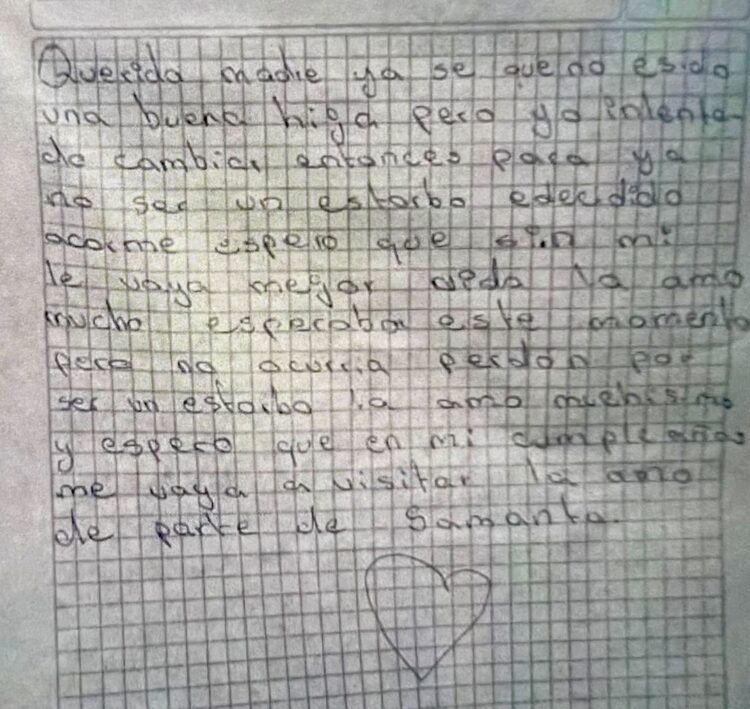 Querida madre ya se que no esido
una buena higa pero yo intenta
do cambiar entonces para ya
no ser un estorbo edecidido
acorme espero que sin mi
le vaya megor la amo
mucho esperaba este momento
pero no ocurria perdon por
ser un estorbo la amo muchisimo
y espero que en mi cumpleaños
me vaya a visitar la amo
de parte de Samanta.